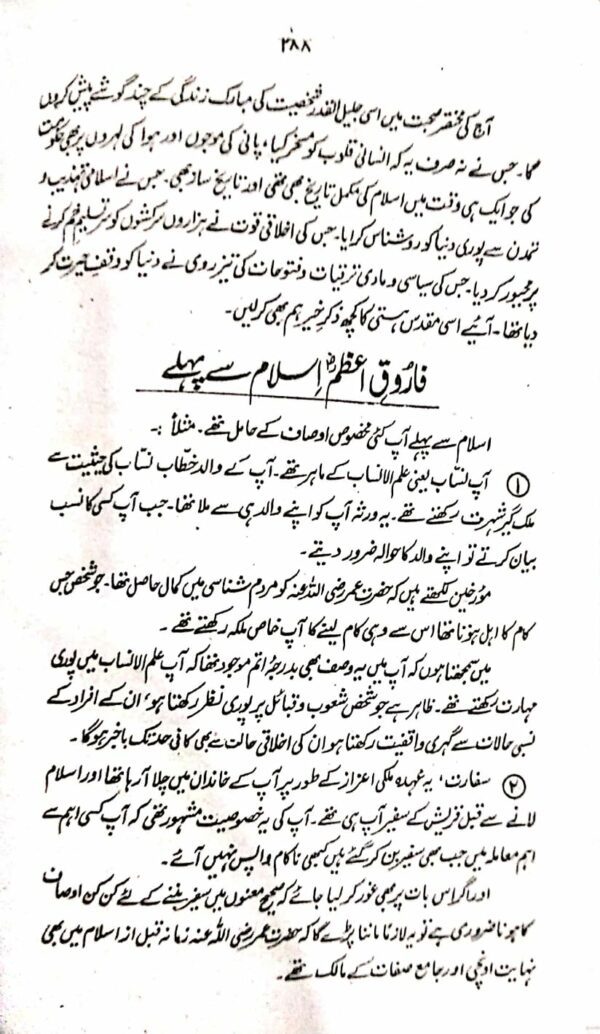 ۲۸۸
آج کی مختصر صحبت میں اسی جلیل القدر شخصیت کی مبارک زندگی کے چند گوشے پیش کروں
گا۔ جس نے نہ صرف یہ کہ انسانی قلوب کو مسخر کیا، پانی کی موجوں اور ہوا کی لہروں پر بھی حکومت
کی جو ایک ہی وقت میں اسلام کی مکمل تاریخ بھی تھی اور تاریخ ساز بھی۔ جس نے اسلامی تہذیب و
تمدن سے پوری دنیا کو روشناس کرایا۔ جس کی اخلاقی قوت نے ہزاروں سرکشوں کو سرتسلیم خم کرنے
پر مجبور کر دیا۔ جس کی سیاسی و مادی ترقیات و فتوحات کی تیز روی نے دنیا کو وقفِ حیرت کر
دیا تھا۔ آئیے اسی مقدس ہستی کا کچھ ذکرِ خیر ہم بھی کرلیں۔
فاروقِ اعظمؓ اسلام سے پہلے
اسلام سے پہلے آپ کئی مخصوص اوصاف کے حامل تھے۔ مثلاً :۔
① آپ نسّاب یعنی علم الانساب کے ماہر تھے۔ آپ کے والد خطّاب نسّاب کی حیثیت سے
ملک گیر شہرت رکھتے تھے۔ یہ ورثہ آپ کو اپنے والد ہی سے ملا تھا۔ جب آپ کسی کا نسب
بیان کرتے تو اپنے والد کا حوالہ ضرور دیتے۔
مؤرخین لکھتے ہیں کہ حضرت عمر رضی اللہ عنہ کو مردم شناسی میں کمال حاصل تھا۔ جو شخص جس
کام کا اہل ہوتا تھا اس سے وہی کام لینے کا آپ خاص ملکہ رکھتے تھے۔
میں سمجھتا ہوں کہ آپ میں یہ وصف بھی بدرجۂ اتم موجود تھا کہ آپ علم الانساب میں پوری
مہارت رکھتے تھے۔ ظاہر ہے جو شخص شعوب و قبائل پر پوری نظر رکھتا ہو، ان کے افراد کے
نسبی حالات سے گہری واقفیت رکھتا ہو ان کی اخلاقی حالت سے بھی کافی حد تک باخبر ہوگا۔
② سفارت، یہ عہدہ ملکی اعزاز کے طور پر آپ کے خاندان میں چلا آ رہا تھا اور اسلام
لانے سے قبل قریش کے سفیر آپ ہی تھے۔ آپ کی یہ خصوصیت مشہور تھی کہ آپ کسی اہم سے
اہم معاملہ میں جب بھی سفیر بن کر گئے ہیں کبھی ناکام واپس نہیں آئے۔
اور اگر اس بات پر بھی غور کر لیا جائے کہ صحیح معنوں میں سفیر بننے کے لئے کن کن اوصاف
کا ہونا ضروری ہے تو یہ لازماً ماننا پڑے گا کہ حضرت عمر رضی اللہ عنہ زمانہ قبل از اسلام میں بھی
نہایت اونچی اور جامع صفات کے مالک تھے۔